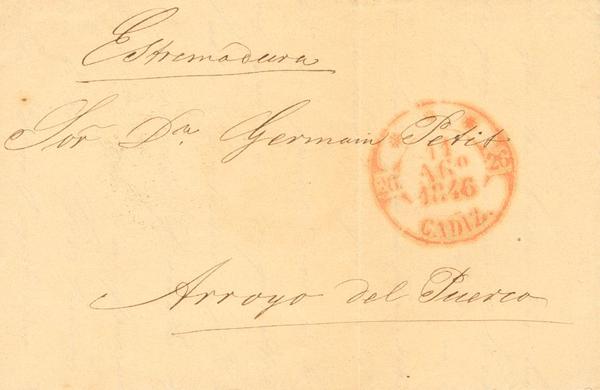 Estremadura
Sor Dn. Germain Petit
11
AGO
1846
26. 26
CADIZ.
Arroyo del Puerco